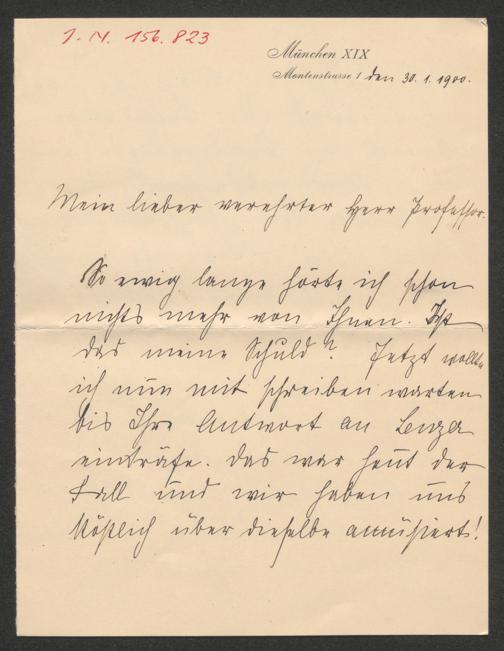 I. N. 156.823
München XIX
Montenstrasse 1 den 30. 1. 1900.
Mein lieber verehrter Herr Professor.
So ewig lange hörte ich schon
nichts mehr von Ihnen. Ist
das meine Schuld? Jetzt wollte
ich nun mit schreiben warten
bis Ihre Antwort an
einträfe. Das war heut der
Fall und wir haben uns
köstlich über dieselbe amüsiert!